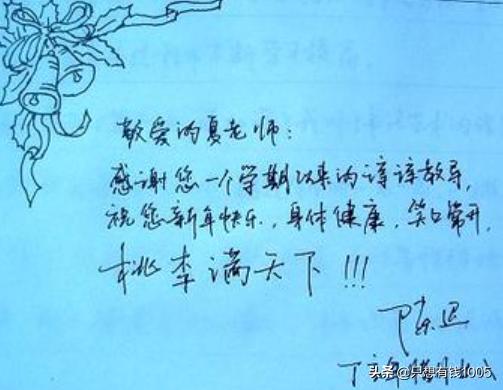 敬爱的夏老师:
感谢您一个学期以来的谆谆教导,
祝您新年快乐,身体健康,笑口常开,
桃李满天下!!!
头条 @只想有钱1005